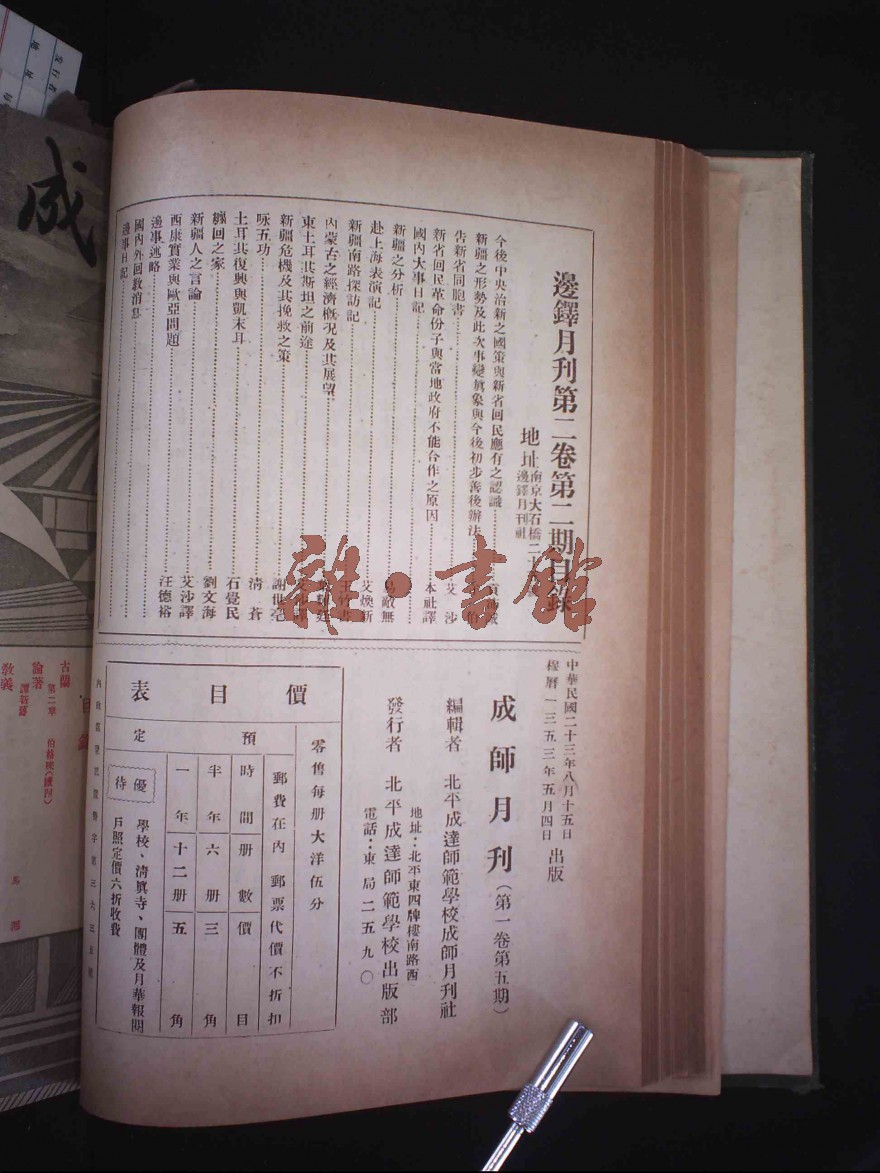 邊鐸月刊第二卷第二期目錄
地址 南京大石橋二
邊鐸月刊社
今後中央治新之國策與新省回民應有之認識
新疆之形勢及此次事變真象與今後初步善後辦法
告新省同胞書 艾沙
新省回民革命份子與當地政府不能合作之原因 本社譯
國內大事日記
新疆之分析
赴上海表演記 易敵無
新疆南路探訪記 艾煥新
內蒙古之經濟概況及其展望 王竹書
東土耳其斯坦之前途
新疆危機及其挽救之策 謝世亳
咏五功 清蒼
土耳其復興與凱末耳 石覺民
纏回之家 劉文海
新疆人之言論 艾沙譯
西康實業與歐亞問題 汪德裕
邊事述略
國內外回教消息
邊事日記
中華民國二十三年八月十五日
穆曆一三五三年五月四日 出版
成師月刊（第一卷第五期）
編輯者 北平成達師範學校成師月刊社
地址：北平東四牌樓南路西
發行者 北平成達師範學校出版部
電話：東局二五九〇
價目表
零售每册大洋伍分
預定
郵費在內 郵票代價不折扣
時間 册數 價目
半年 六册 三角
一年 十二册 五角
優待
學校、清真寺、團體及月華報閱
戶照定價六折收費
成
目
古蘭
第二章
論著
譚新錄
教義
雜·書館